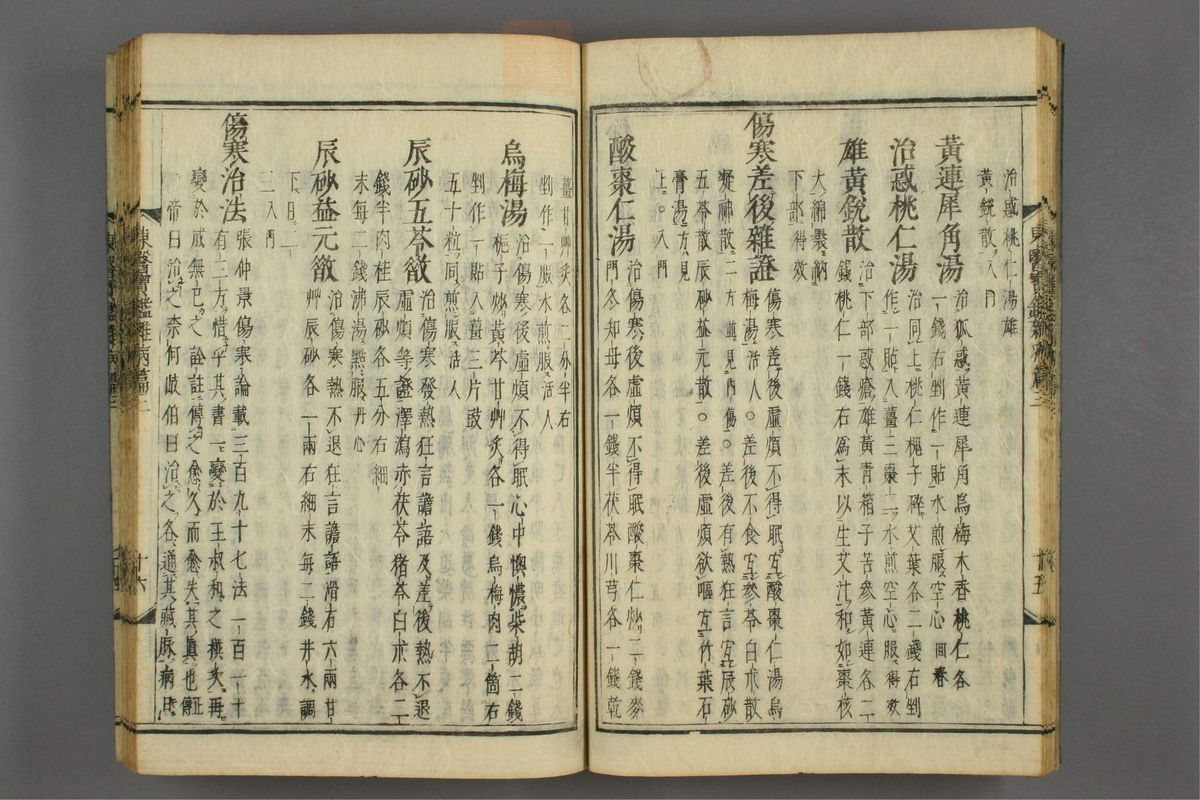 治惑桃仁湯雄
黃銳散入門
黃連犀角湯 治狐惑黃連犀角烏梅木香桃仁各
一錢右剉作一貼水煎服空心 回春
治惑桃仁湯 治同上桃仁槐子碎艾葉各二錢右剉
作一貼入薑三棗二水煎空心服 得效
雄黃銳散 治下部惑瘡雄黃青箱子苦參黃連各二
錢桃仁一錢右爲末以生艾汁和如棗核
大綿裹納
下部得效
傷寒差後雜證 傷寒差後虛煩不得眠宜酸棗仁湯烏
梅湯活人○差後不食宜參苓白朮散
凝神散二方並見內傷○差後有熱狂言宜辰砂
五苓散辰砂益元散○差後虛煩欲嘔宜竹葉石
膏湯方見
上○入門
酸棗仁湯 治傷寒後虛煩不得眠酸棗仁炒二錢麥
門冬知母各一錢半茯苓川芎各一錢乾
薑甘艸炙各二分半右
剉作一服水煎服活人
烏梅湯 治傷寒後虛煩不得眠心中懊憹柴胡二錢
梔子炒黃芩甘艸炙各一錢烏梅肉二箇右
剉作一貼入薑三片豉
五十粒同煎服活人
辰砂五苓散 治傷寒發熱狂言譫語及差後熱不退
虛煩等證澤瀉赤茯苓猪苓白朮各二
錢半肉桂辰砂各五分右細
末每二錢沸湯點服丹心
辰砂益元散 治傷寒熱不退狂言譫語滑石六兩甘
艸辰砂各一兩右細末每二錢井水調
下日二
三入門
傷寒治法 張仲景傷寒論載三百九十七法一百一十
有二方惜乎其書一變於王叔和之撰次再
變於成無已之詮註傳之愈久而愈失其眞也 正傳
帝曰治之奈何岐伯曰治之各通其藏脉病日